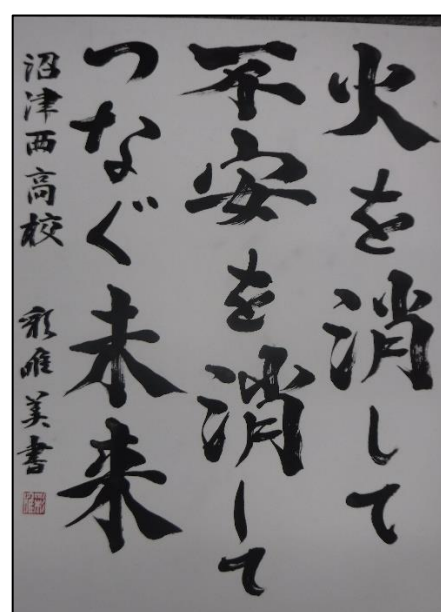 火を消して
不安を消して
つなぐ未来
沼津西高校 彩唯美書